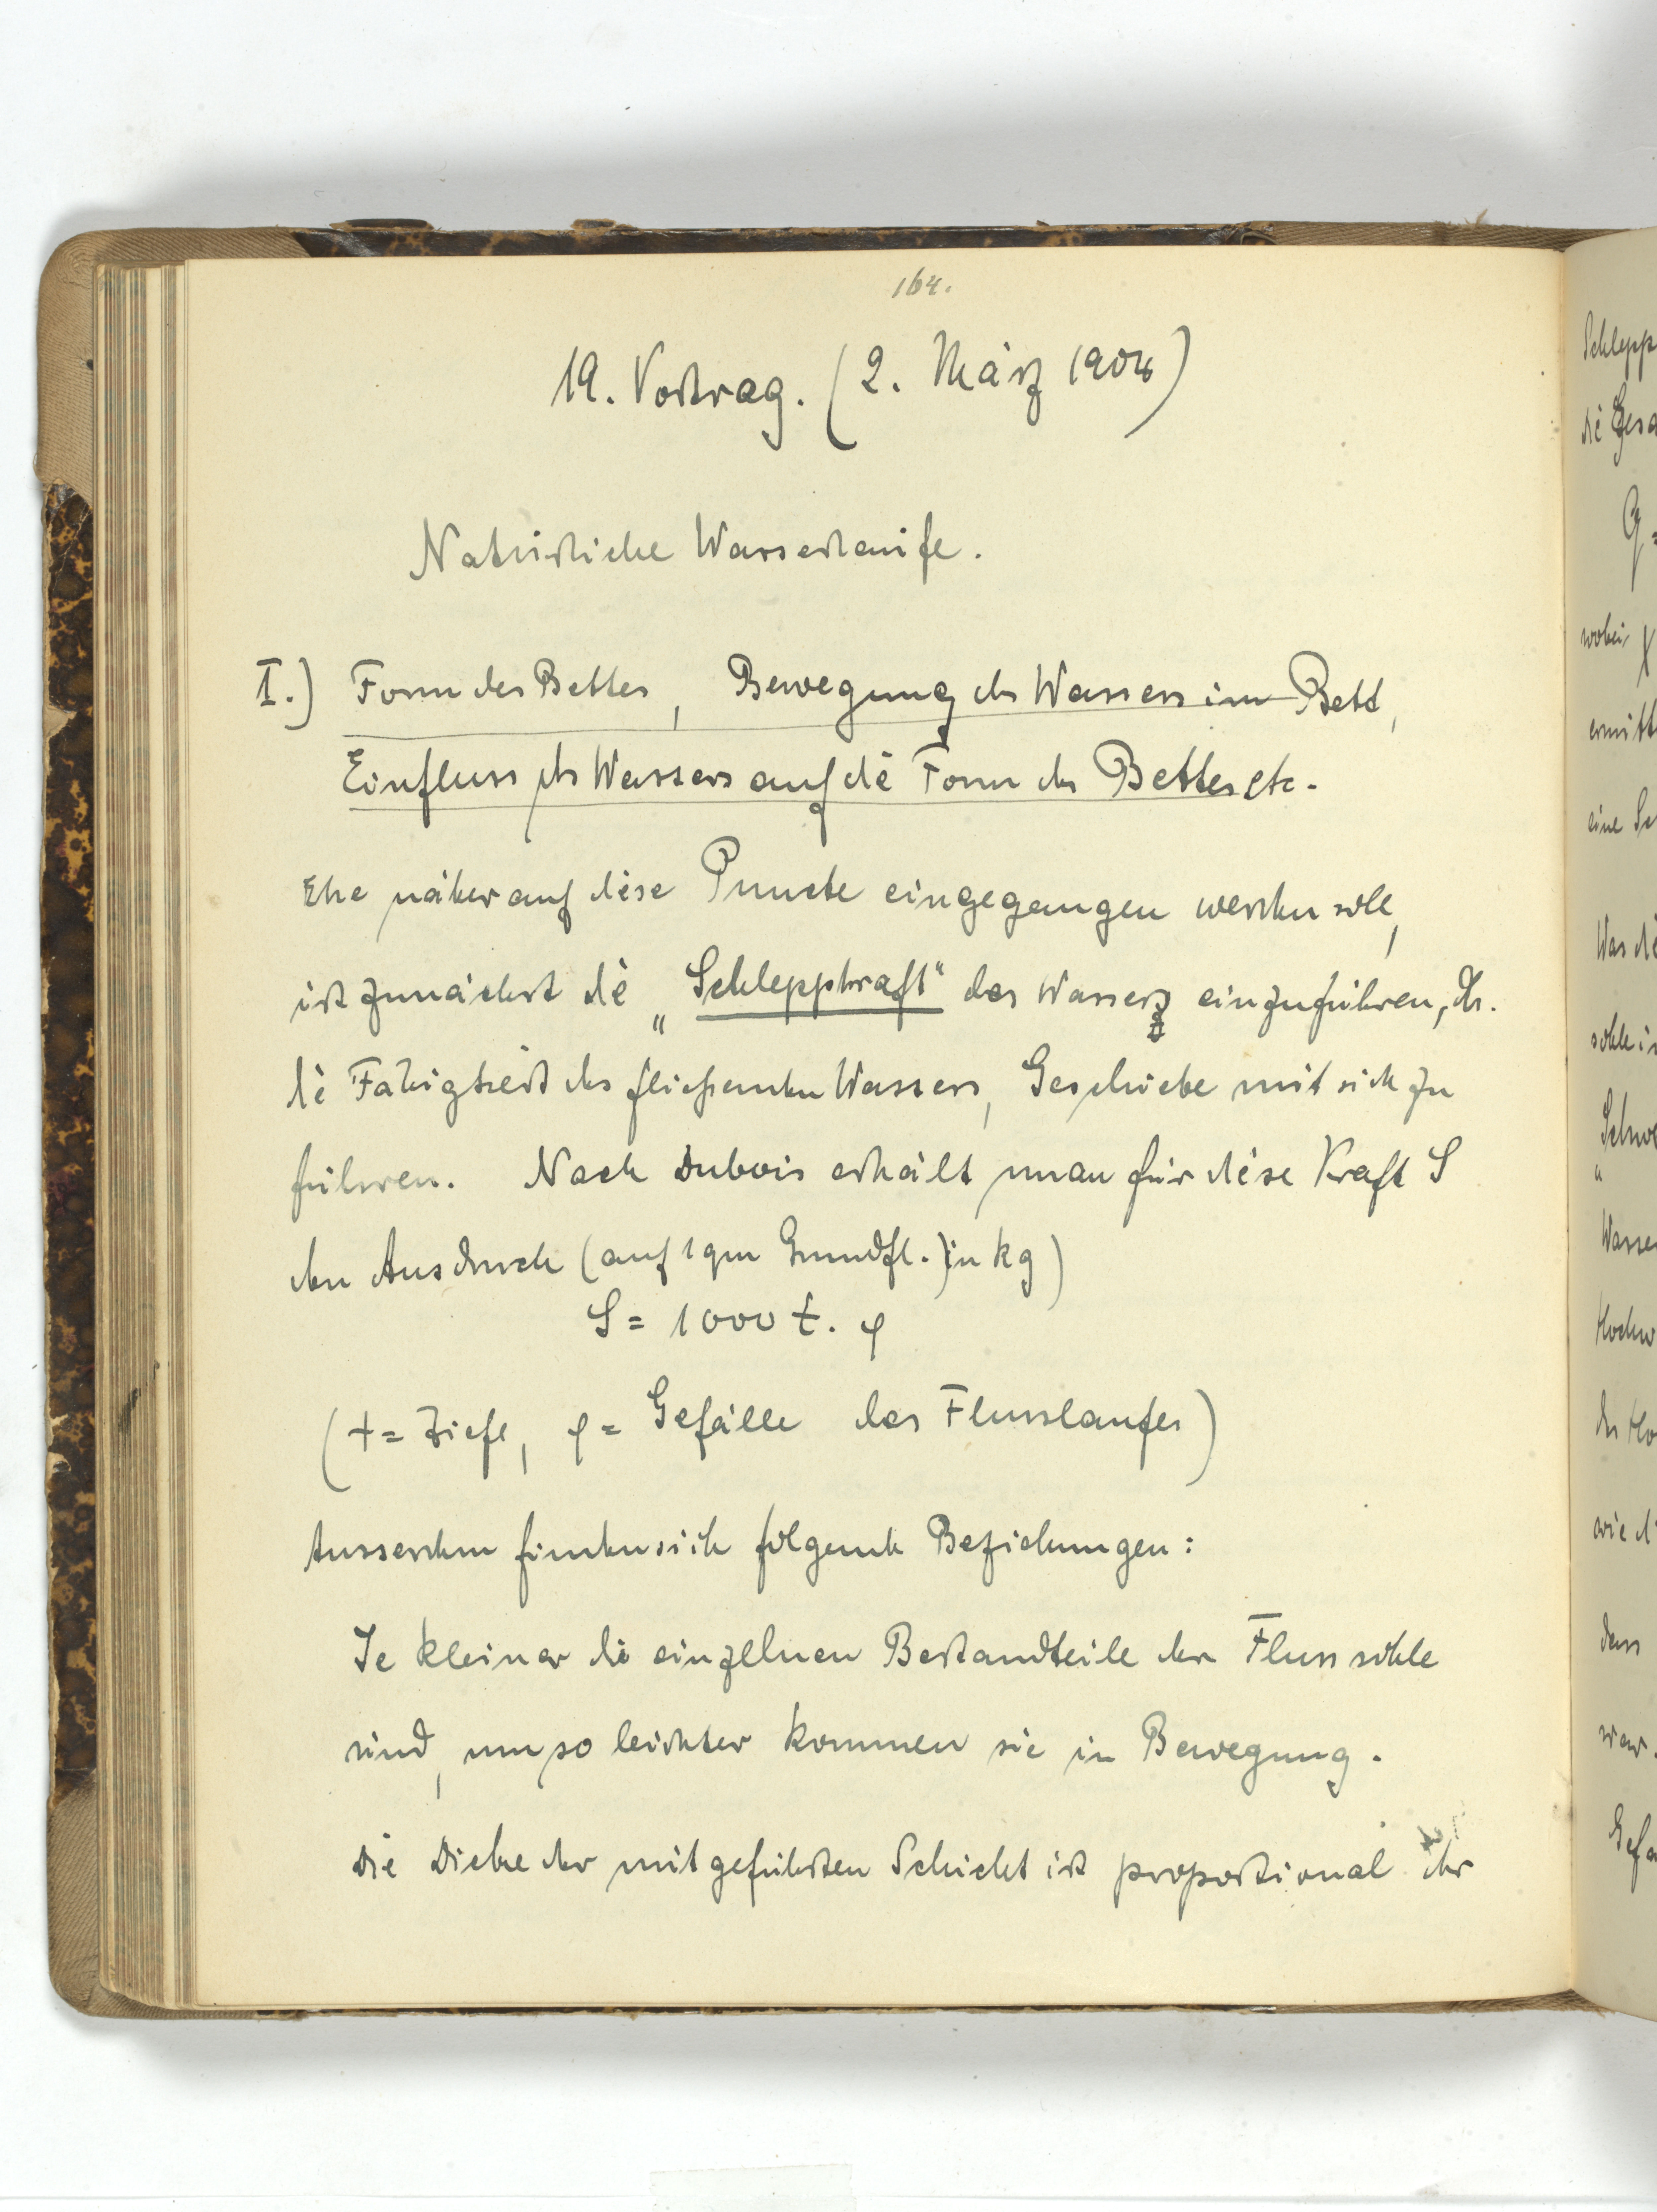 164.
19. Vortrag. (2. März 1904)
Natürliche Wasserläufe.
I.) Form des Bettes, Bewegung des Wassers im Bett,
Einfluss des Wassers auf die Form des Bettes etc.
Ehe näher auf diese Puncte eingegangen werden soll,
ist zunächst die „Schleppkraft“ des Wassers einzuführen, dh.
die Fähigkeit des fließenden Wassers, Geschiebe mit sich zu
führen. Nach Dubois erhält man für diese Kraft S
den Ausdruck (auf 1 qm Grundfl.) in kg)
S = 1000 t. φ
(t = Tiefe, φ = Gefälle des Flusslaufes)
Ausserdem finden sich folgende Beziehungen:
Je kleiner die einzelnen Bestandteile der Flusssohle
sind, um so leichter kommen sie in Bewegung.
Die Dicke der mitgeführten Schicht ist proportional der
Schlepp
die Gesa
G =
wobei χ
ermitt
eine Se
Was die
sohle i
„Schwe
Wasse
Hochw
der Ho
wie d
dass
war.
Gefä